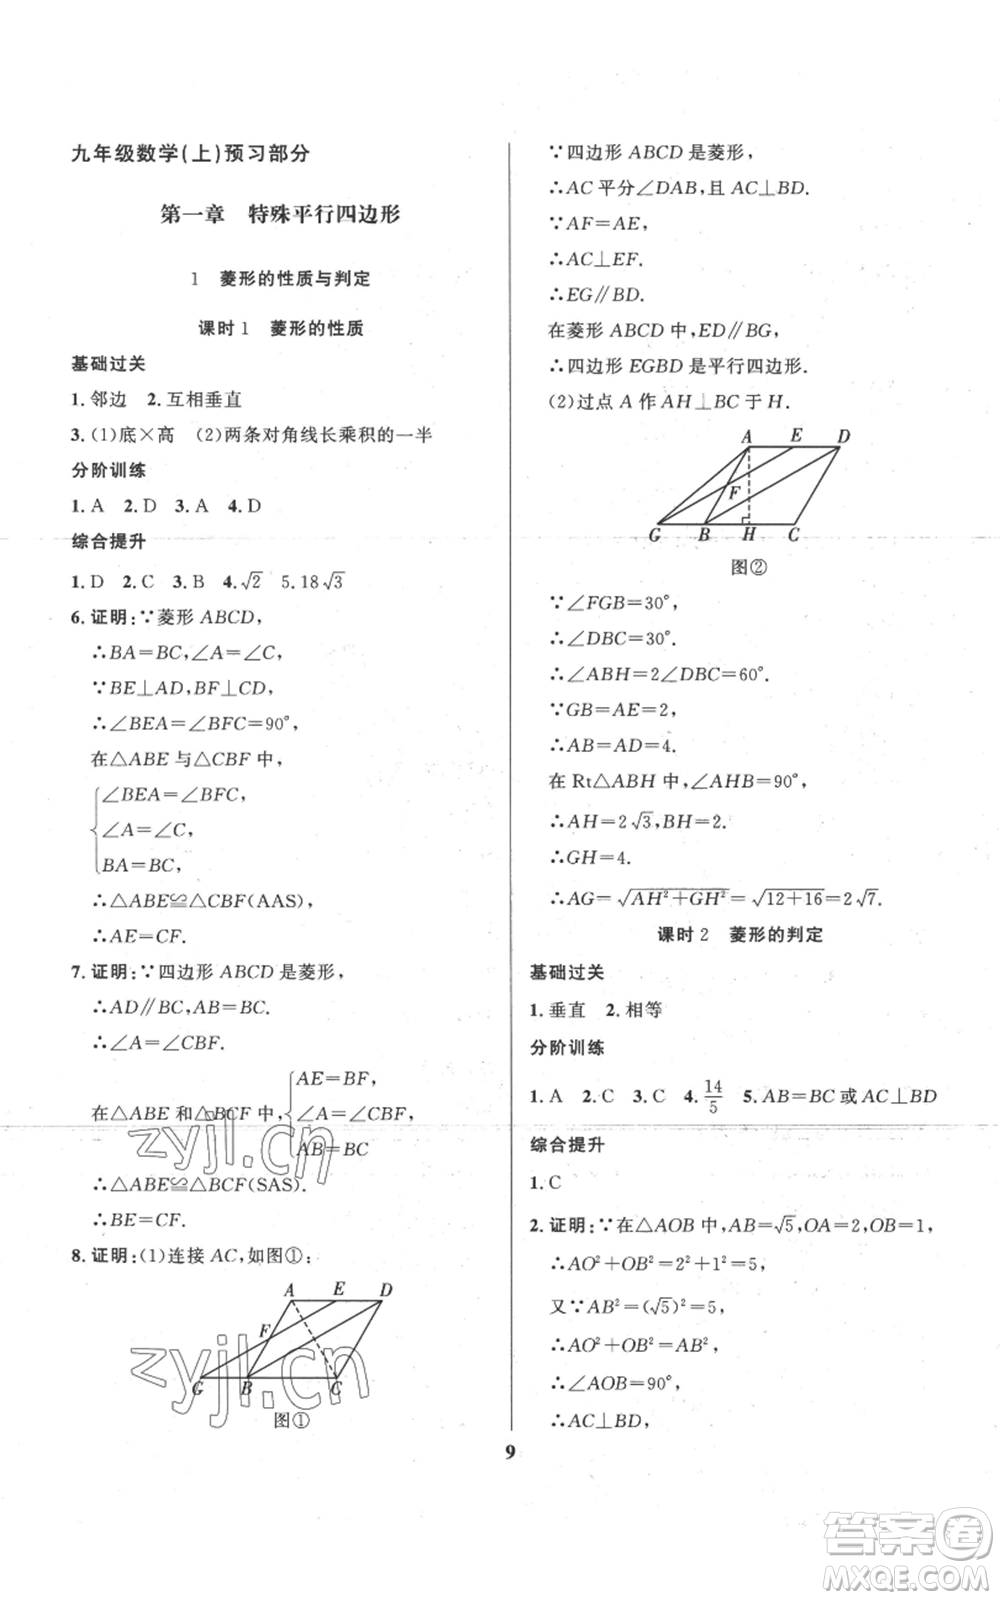 九年级数学(上)预习部分
第一章 特殊平行四边形
1 菱形的性质与判定
课时1 菱形的性质
基础过关
1.邻边 2.互相垂直
3.(1)底×高 (2)两条对角线长乘积的一半
分阶训练
1.A 2.D 3.A 4.D
综合提升
1.D 2.C 3.B 4.√2 5.18√3
6.证明:∵菱形ABCD,
∴BA=BC,∠A=∠C,
∵BE⊥AD,BF⊥CD,
∴∠BEA=∠BFC=90°,
在△ABE与△CBF中,
∠BEA=∠BFC,
∠A=∠C,
BA=BC,
∴△ABE≌△CBF(AAS),
∴AE=CF.
7.证明:∵四边形ABCD是菱形,
∴AD∥BC,AB=BC.
∴∠A=∠CBF.
AE=BF,
在△ABE和△BCF中,∠A=∠CBF,
AB=BC
∴△ABE≌△BCF(SAS).
∴BE=CF.
8.证明:(1)连接AC,如图①:
A E D
F
G B C
图①
∵四边形ABCD是菱形,
∴AC平分∠DAB,且AC⊥BD.
∵AF=AE,
∴AC⊥EF.
∴EG∥BD.
在菱形ABCD中,ED∥BG,
∴四边形EGBD是平行四边形.
(2)过点A作AH⊥BC于H.
A E D
F
G B H C
图②
∵∠FGB=30°,
∴∠DBC=30°.
∴∠ABH=2∠DBC=60°.
∵GB=AE=2,
∴AB=AD=4.
在Rt△ABH中,∠AHB=90°,
∴AH=2√3,BH=2.
∴GH=4.
∴AG=√AH²+GH²=√12+16=2√7.
课时2 菱形的判定
基础过关
1.垂直 2.相等
分阶训练
1.A 2.C 3.C 4.14/5 5.AB=BC或AC⊥BD
综合提升
1.C
2.证明:∵在△AOB中,AB=√5,OA=2,OB=1,
∴AO²+OB²=2²+1²=5,
又∵AB²=(√5)²=5,
∴AO²+OB²=AB²,
∴∠AOB=90°,
∴AC⊥BD,
9
zyjl.cn
zyjl.cn
答案卷
MXQE.COM